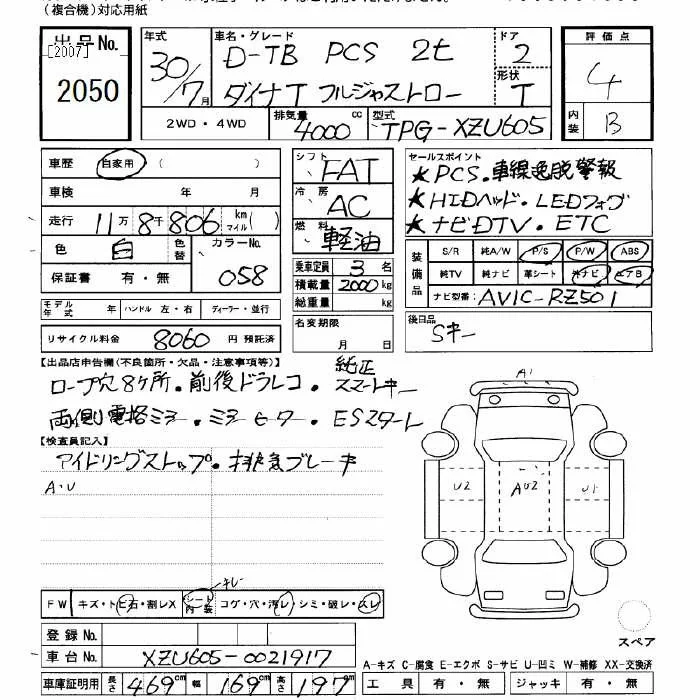 (複合機)対応用紙
出品No.
[2007]
2050
年式
30/7月
車名・グレード
D-TB PCS 2t
ダイナT フルジャストロー
ドア
2
形状
T
2WD・4WD
排気量
4000cc
型式
TPG-XZU605
評価点
4
内装
B
車歴 自家用 ( )
車検 年 月
走行 11万8千806 km マイル ( )
色 白 色替 カラーNo. 058
保証書 有・無
モデル年式 年 ハンドル 左・右 ディーラー・並行
リサイクル料金 8060 円 預託済
シフト FAT
冷房 AC
燃料 軽油
乗車定員 3 名
積載量 2000 kg
総重量 kg
名変期限
月 日
セールスポイント
★PCS.車線逸脱警報
★HIDヘッド.LEDフォグ
★ナビDTV.ETC
装備品
S/R 純A/W P/S P/W ABS
純TV 純ナビ 革シート 外ナビ エアB
ナビ型番: AVIC-RZ501
後日品
Sキー
【出品店申告欄(不良箇所・欠品・注意事項等)】
ロープ穴8ヶ所.前後ドラレコ.純正スマートキー
両側電格ミラー.ミラーヒーター.ESスタート
【検査員記入】
アイドリングストップ.排気ブレーキ
A・U
A1
U2
AU2
U1
FW キズ・トビ石・割レX シート内装 コゲ・穴・汚レ・シミ・破レ・スレ
キレ
登録No.
車台No. XZU605-0021917
車庫証明用 長さ 469cm 幅 169cm 高さ 197cm
スペア
A-キズ C-腐食 E-エクボ S-サビ U-凹ミ W-補修 XX-交換済
工具 有・無 ジャッキ 有・無